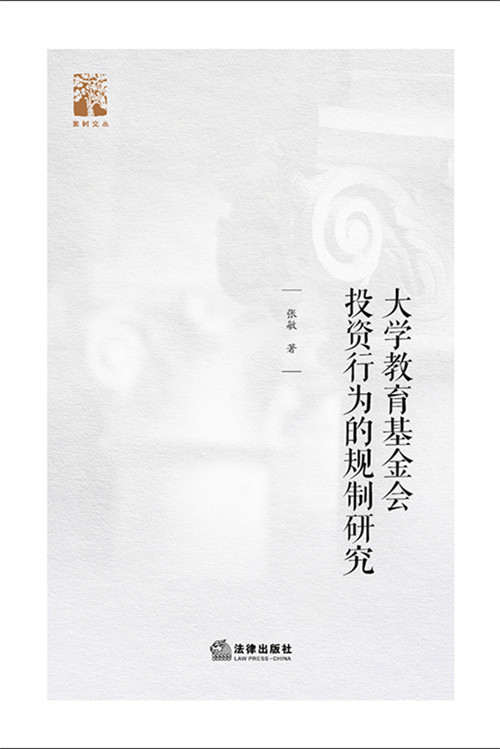 大学教育基金会
投资行为的规制研究
张敏 著
法律出版社
LAW PRESS·CHINA